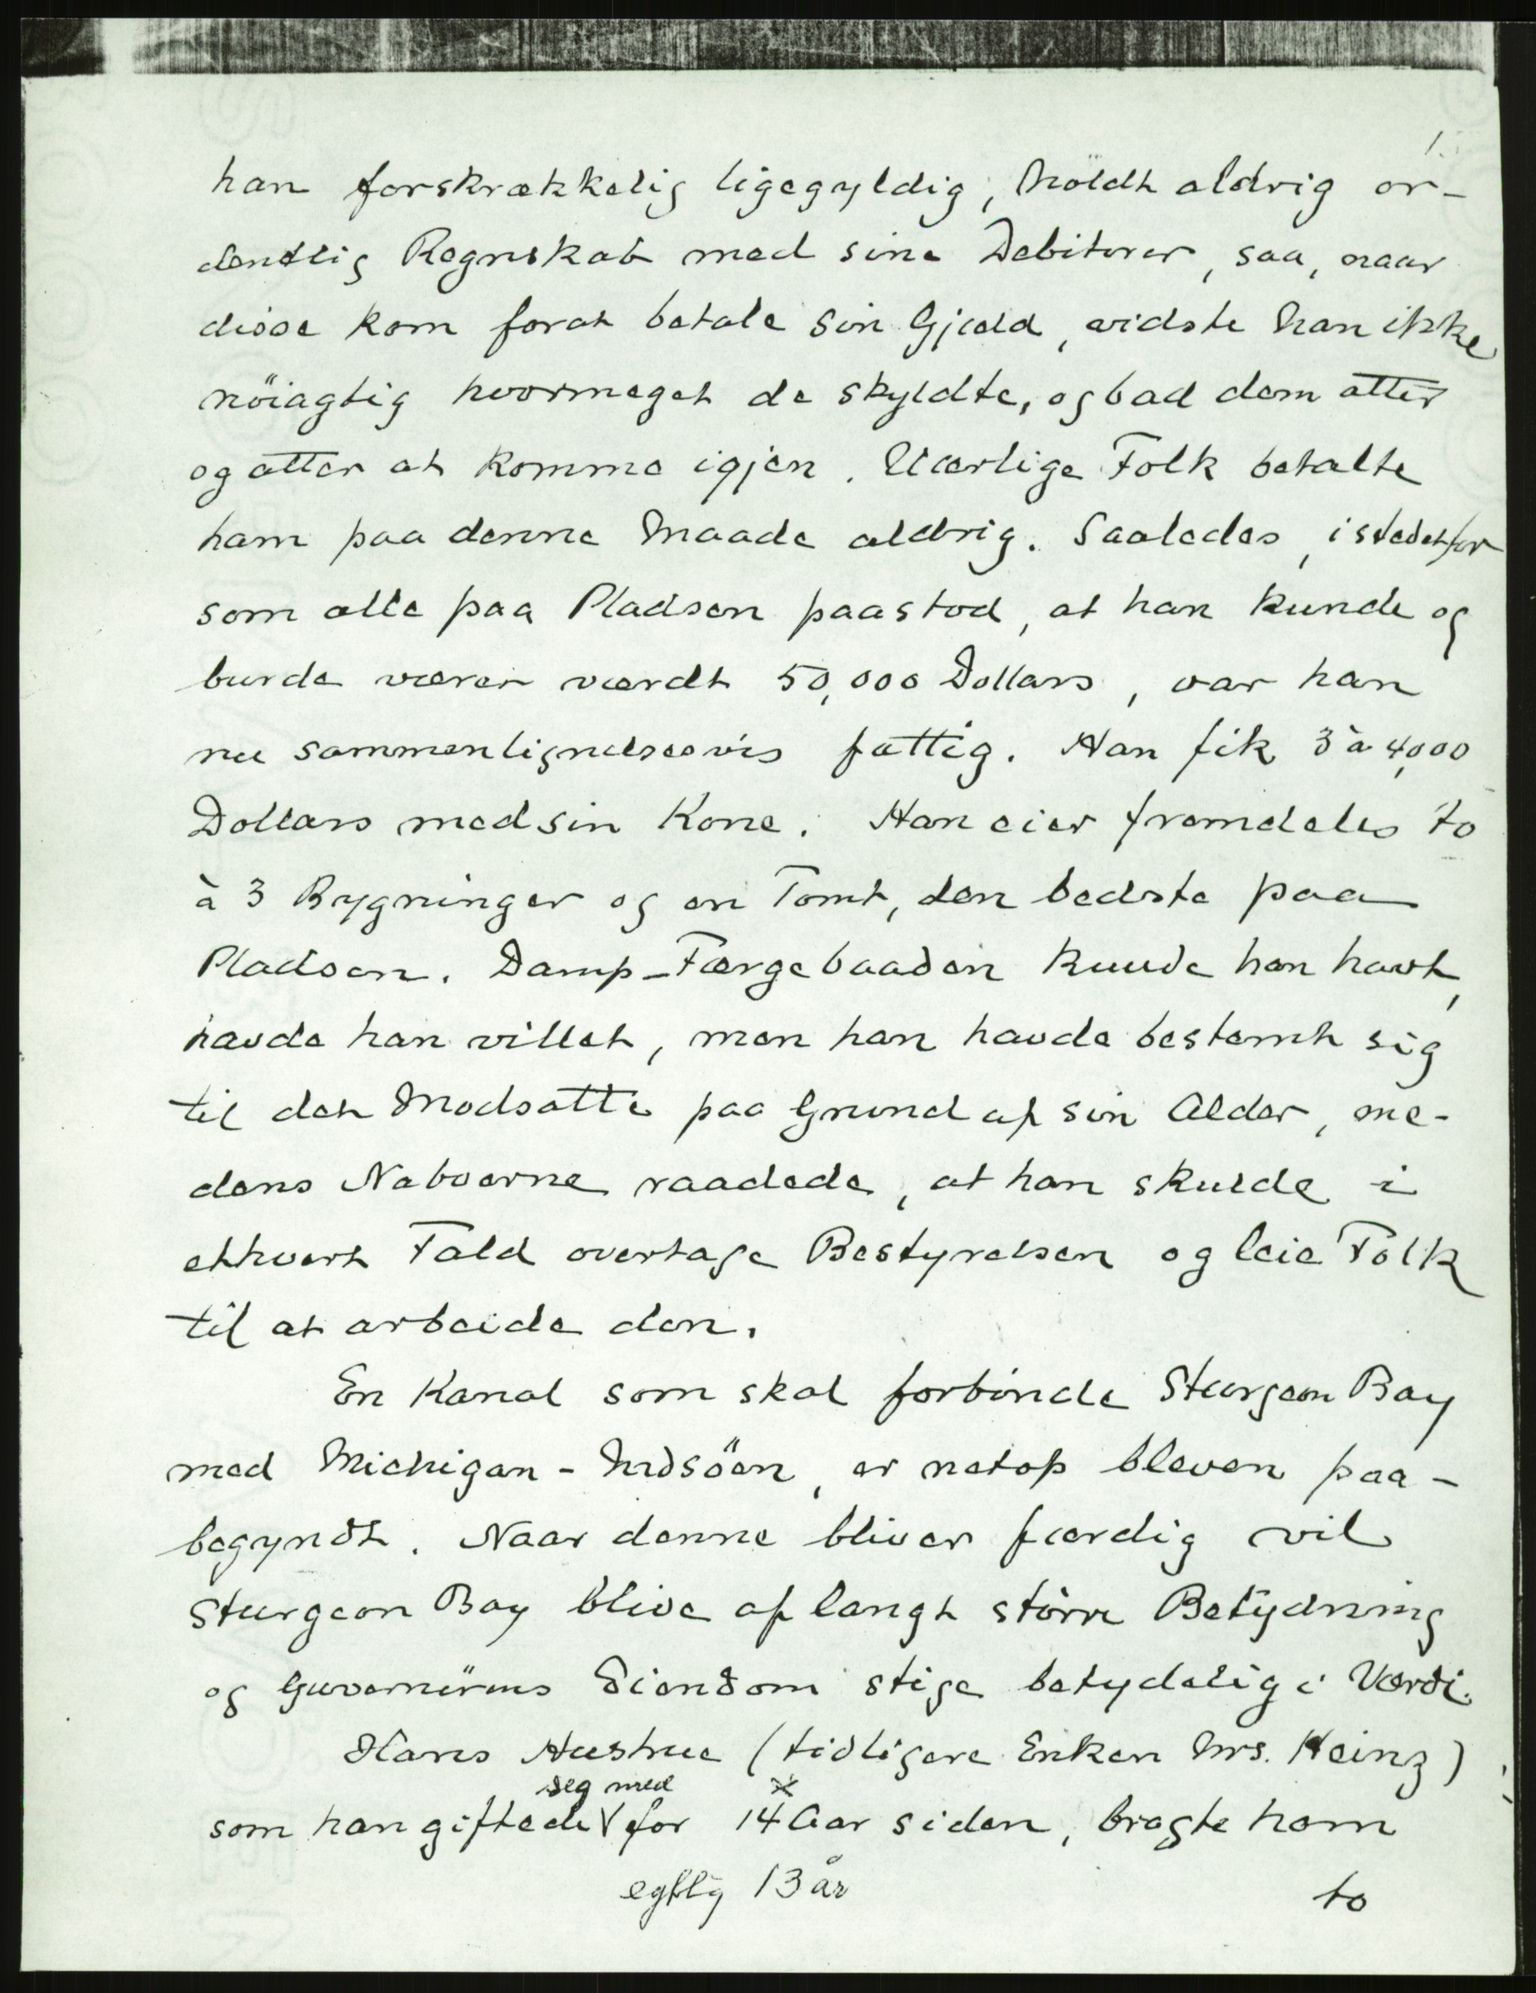 1.
han forskrækkelig ligegyldig, holdt aldrig or-
dentlig Regnskab med sine Debitorer, saa, naar
disse kom forat betale sin Gjæld, vidste han ikke
nöiagtig hvormeget de skyldte, og bad dem atter
og atter at komme igjen. Uærlige Folk betalte
ham paa denne Maade aldrig. Saaledes, istedetfor
som alle paa Pladsen paastod, at han kunde og
burde være værdt 50,000 Dollars, var han
nu sammenlignelsesvis fattig. Han fik 3 à 4,000
Dollars med sin Kone. Han eier fremdeles to
à 3 Bygninger og en Tomt, den bedste paa
Pladsen. Damp-Færgebaaden kunde han havt,
havde han villet, men han havde bestemt sig
til det Modsatte paa Grund af sin Alder, me-
dens Naboerne raadede, at han skulde i
ethvert Fald overtage Bestyrelsen og leie Folk
til at arbeide den.
En Kanal som skal forbinde Sturgeon Bay
med Michigan-Indsöen, er netop bleven paa-
begyndt. Naar denne bliver færdig vil
Sturgeon Bay blive af langt större Betydning
og Guvernörens Eiendom stige betydelig i Værdi.
Hans Hustrue (tidligere Enken Mrs. Heinz)
seg med x
som han giftede V for 14 Aar siden, bragte ham
egtlig 13 år
to